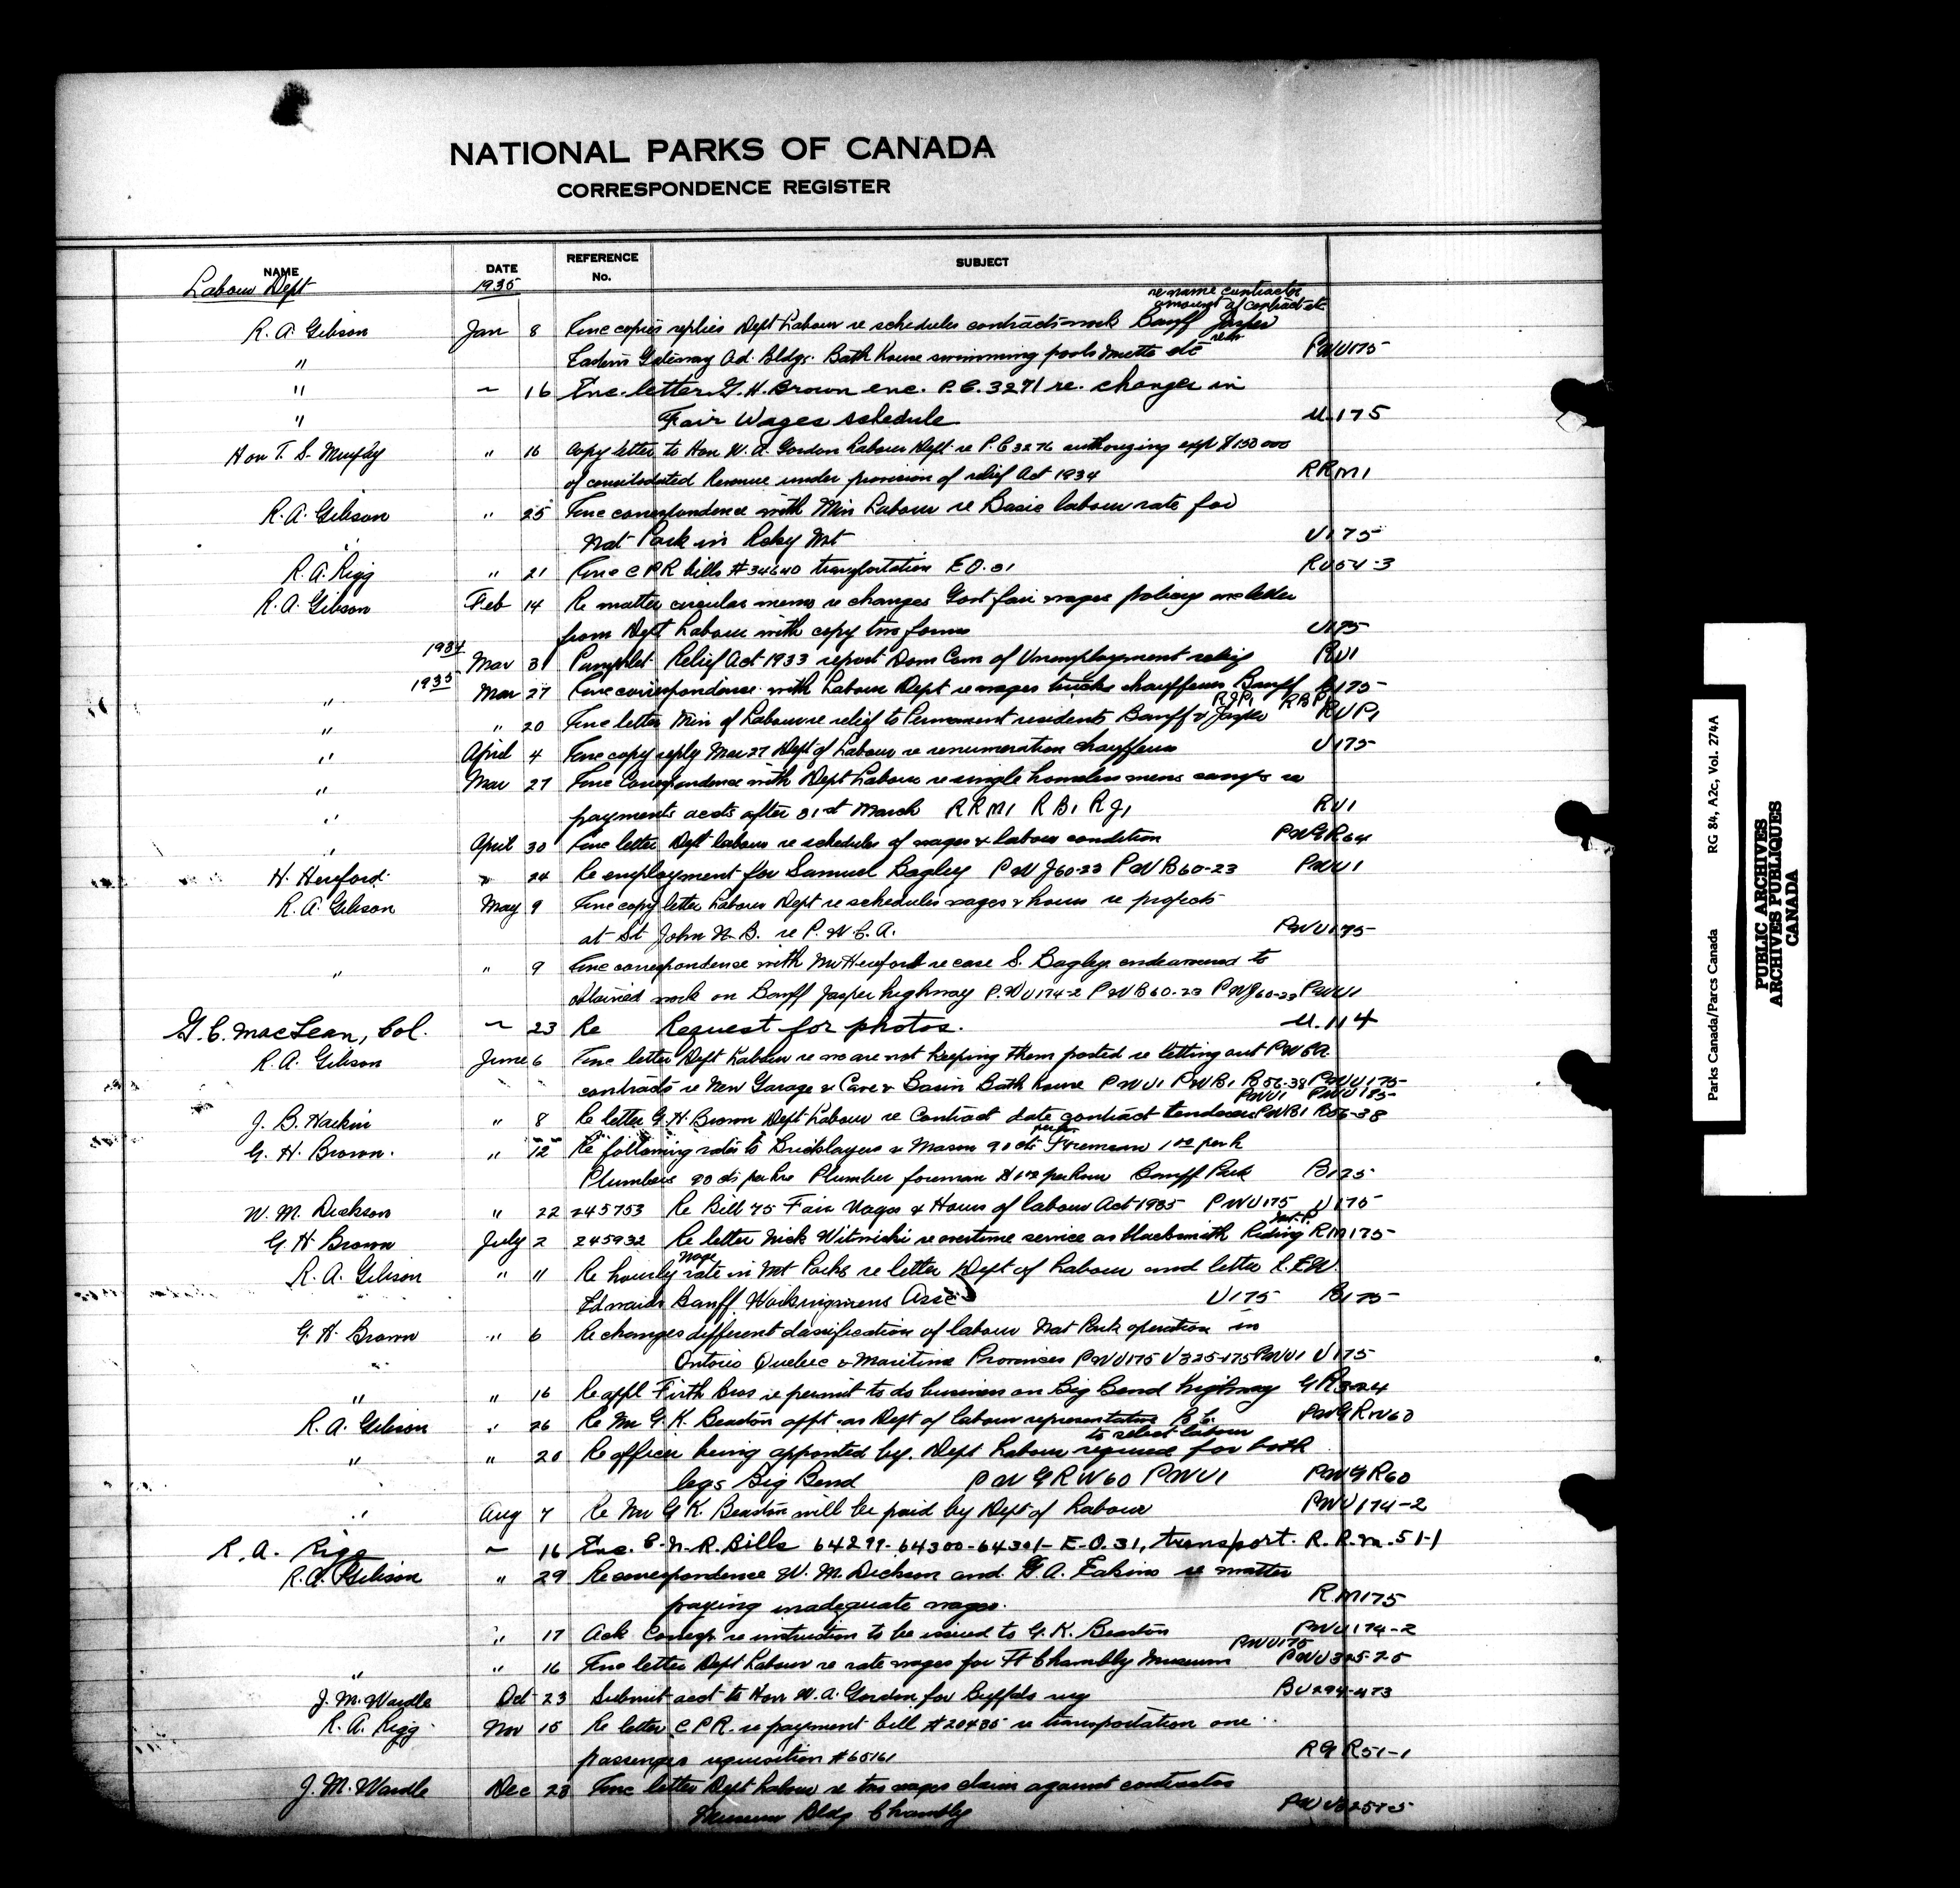 NATIONAL PARKS OF CANADA
CORRESPONDENCE REGISTER
NAME DATE REFERENCE No. SUBJECT
Labour Dept 1935
re name contractor
amount of contract etc
R. A. Gibson Jan 8 Enc copies replies Dept Labour re schedules contracts work Banff Jasper
" Eastern Gateway Ad. Bldgs. Bath House swimming pools etc PWU175
" ~ 16 Enc. letter G. H. Brown enc. P.C. 3271 re. changes in
" Fair Wages schedule U.175
Hon T. G. Murphy " 16 Copy letter to Hon W. A. Gordon Labour Dept re P.C 3276 authorizing exp $150 000
of consolidated Revenue under provision of relief Act 1934 RRM1
R. A. Gibson " 25 Enc correspondence with Min Labour re Basic labour rate for
Nat Park in Rcky Mt U175
R. A. Rigg " 21 Enc C P R bills # 34640 transportation E O. 31 RU51-3
R. A. Gibson Feb 14 Re matter circular memo re changes Govt fair wages policy letter
from Dept Labour with copy two forms U175
1934 Mar 31 Pamphlet Relief Act 1933 report Dom Com of Unemployment relief RU1
1935 " Mar 27 Enc correspondence with Labour Dept re wages trucks chauffeurs Banff B175
RJP1 RBP1
" " 20 Enc letter Min of Labour re relief to Permanent residents Banff & Jasper RUP1
" April 4 Enc copy reply Mar 27 Dept of Labour re renumeration chauffeurs U175
" Mar 27 Enc Correspondence with Dept Labour re single homeless mens camps re
" payments accts after 31st March RRM1 RB1 RJ1 RU1
" April 30 Enc letter Dept labour re schedules of wages & labour condition PWGR64
H. Hereford " 24 Re employment for Samuel Bagley PWJ60-23 PWB60-23 PWU1
R. A. Gibson May 9 Enc copy letter Labour Dept re schedules wages & hours re projects
at St John N. B. re P. W. C. A. PWU175
" " 9 Enc correspondence with Mr Hereford re case S. Bagley endeavoured to
obtained work on Banff Jasper highway P.W U174-2 PWB60-23 PWJ60-23 PWU1
G. C. MacLean, Col. ~ 23 Re Request for photos. U.114
R. A. Gibson June 6 Enc letter Dept Labour re we are not keeping them posted re letting out PWCA
contracts re New Garage & Cave & Basin Bath house PWU1 PWB1 B56-38 PWU175
PWU1 PWU185
J. B. Harkin " 8 Re letter G H Brown Dept Labour re Contract date contract tenders PWB1 B56-38
G. H. Brown. " 12 Re following rates to Bricklayers & Mason 90 cts per hr Foreman 1.00 per h
Plumbers 90 cts per hr Plumber foreman $1.00 per hour Banff Park B175
W. M. Dickson " 22 245753 Re Bill 75 Fair Wages & Hours of labour Act 1935 PWU175 U175
G H Brown July 2 245932 Re letter Nick Witwicki re overtime service as blacksmith Riding Mt. P. RM175
R. A. Gibson " 11 Re hourly wage rate in Mt Parks re letter Dept of Labour and letter R.E.W.
Edwards Banff Workingmens Assc U175 B175
G. H. Brown " 6 Re changes different classification of labour Nat Park operation in
Ontario Quebec & Maritime Provinces PWU175 U325-175 PWU1 U175
" " 16 Re appl Firth Bros re permit to do business on Big Bend highway GR324
R. A. Gibson " 26 Re Mr G. K. Beaston appt. as Dept of labour representative B C. PWGRW60
to select labour
" " 20 Re officer being appointed by Dept Labour required for both
legs Big Bend PWGRW60 PWU1 PWGR60
" Aug 7 Re Mr G K. Beaston will be paid by Dept of Labour PWU174-2
R. A. Rigg ~ 16 Enc. C. N. R. Bills 64299-64300-64301- E-O.31, transport. R.R.M.51-1
R. A. Gibson " 29 Re correspondence W. M. Dickson and G. A. Eakins re matter
paying inadequate wages. RM175
" 17 Ack Corresp re instruction to be issued to G. K. Beaston PWU174-2
PWU175
" " 16 Enc letter Dept Labour re rate wages for Ft Chambly Museum PWU325-25
J. M. Wardle Oct 23 Submit acct to Hon W. A. Gordon for Buffalo rug BU294-473
R. A. Rigg Nov 15 Re letter C P R. re payment bill # 20485 re transportation one
passenger requisition # 65161 RGR51-1
J. M. Wardle Dec 28 Enc letter Dept Labour re two wages claim against contractor
Museum Bldg Chambly
Parks Canada/Parcs Canada RG 84, A2c, Vol. 274A
PUBLIC ARCHIVES
ARCHIVES PUBLIQUES
CANADA